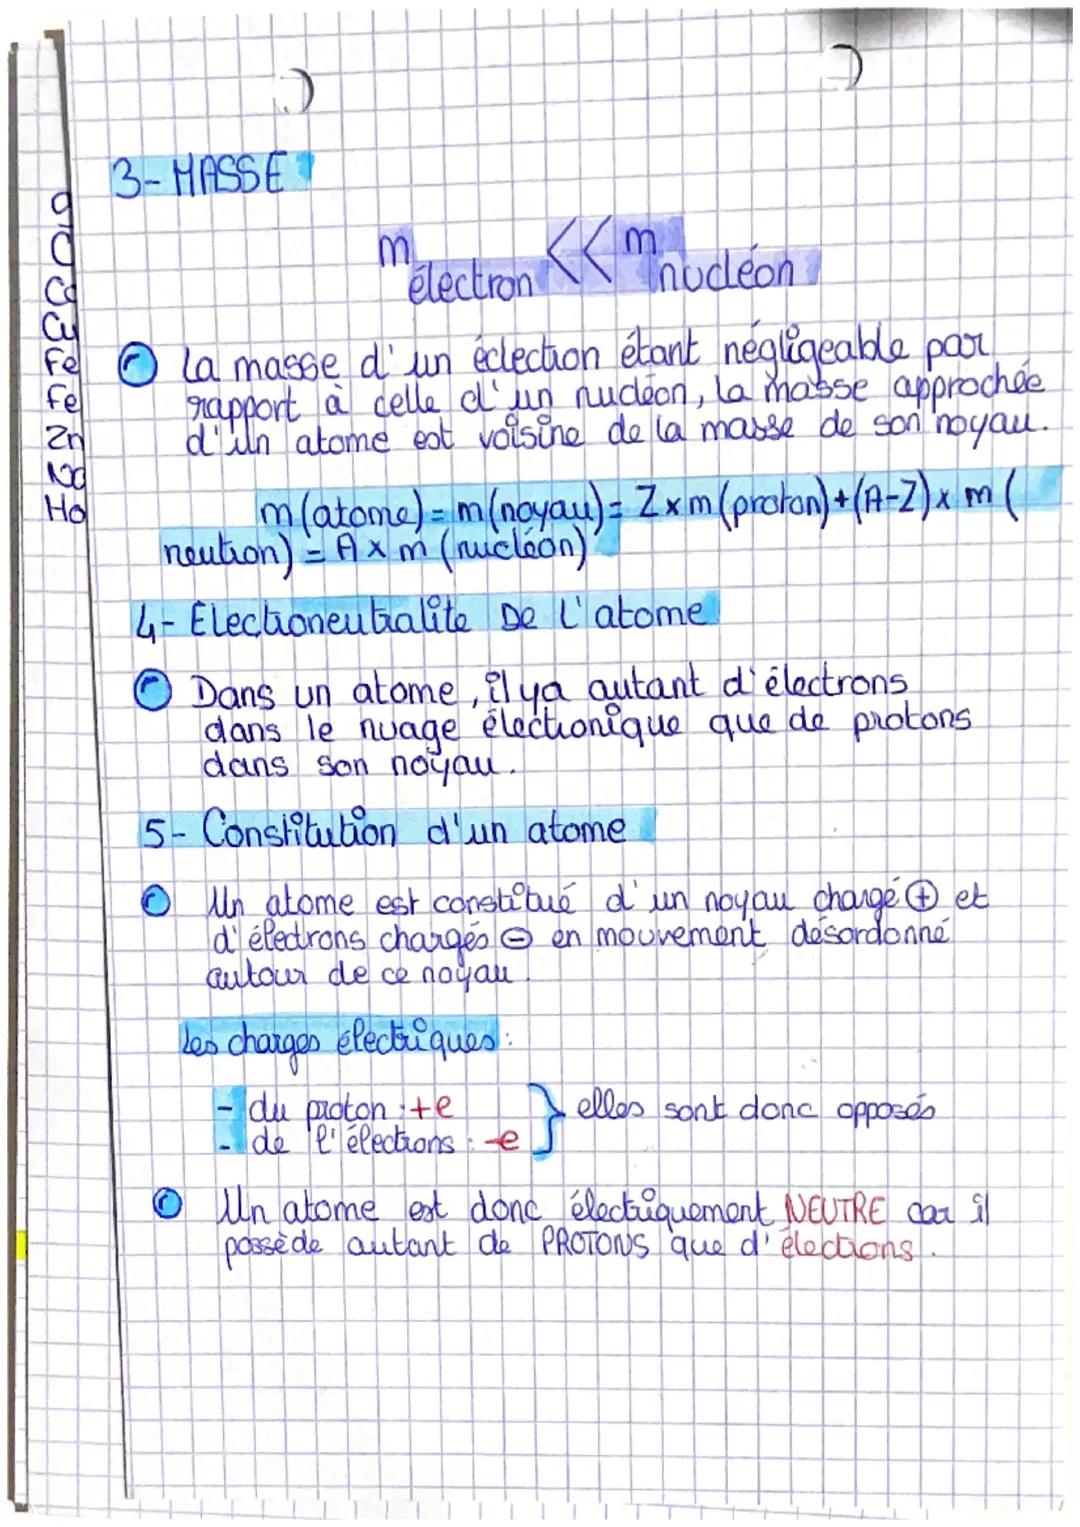 3- MASSE
m électron << m nucléon
La masse d'un éclection étant négligeable par
rapport à celle d'un nucléon, la masse approchée
d'un atome est voisine de la masse de son noyau.
m(atome) = m(noyau) = Z x m(proton) + (A-Z) x m (
neution) = A x m (nucléon)
4- Electioneutralite De L'atome
Dans un atome, il ya autant d'électrons
dans le nuage électionique que de protons
dans son noyau.
5- Constitution d'un atome
Un atome est constitué d'un noyau chargé ⊕ et
d'électrons chargés ⊖ en mouvement désordonné
autour de ce noyau.
Les charges électriques :
- du proton : +e } elles sont donc opposés
- de l'élections : -e
Un atome est donc électriquement NEUTRE car il
possède autant de PROTONS que d'élections.
Cu
Fe
Fe
Zn